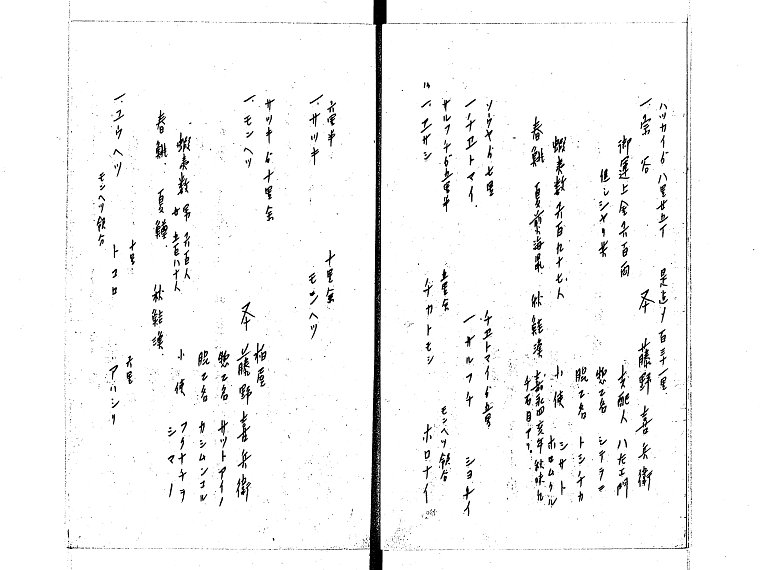 ハツカイゟ八里廿五丁 是迄ノ百三十一里
一、宗谷 夲 藤野喜兵衛
御運上金弐百両 支配人 ハ左エ門
但シシヤリ共 惣乙名 シテラニ
脇乙名 トシチカ
蝦夷数弐百九十七人 小使 シサト
ホロムクル
春鯡 夏煎海鼠 秋鮭漁 嘉永四亥年秋味九
千石目ナリ
ソウヤゟ七里 チヱトマイゟ五里
一、チヱトマイ 一サルフチ シヨナイ
サルフチゟ五里半 五里余 モンヘツ領分
一エサシ チカトモシ ホロナイ
六里半 十里余
一、サツキ モンヘツ
サツキゟ十里余 柏屋
一、モンヘツ 夲 藤野喜兵衛
惣乙名 サツトアイノ
蝦夷数 男 弐百人 脇乙名 カシムンコル
女 五百八十人 小使 フツナチヲ
春鯡 夏鱒 秋鮭漁 シマノ
一、ユウヘツ 十里 トコロ 六里 アハシリ
モンヘツ領分